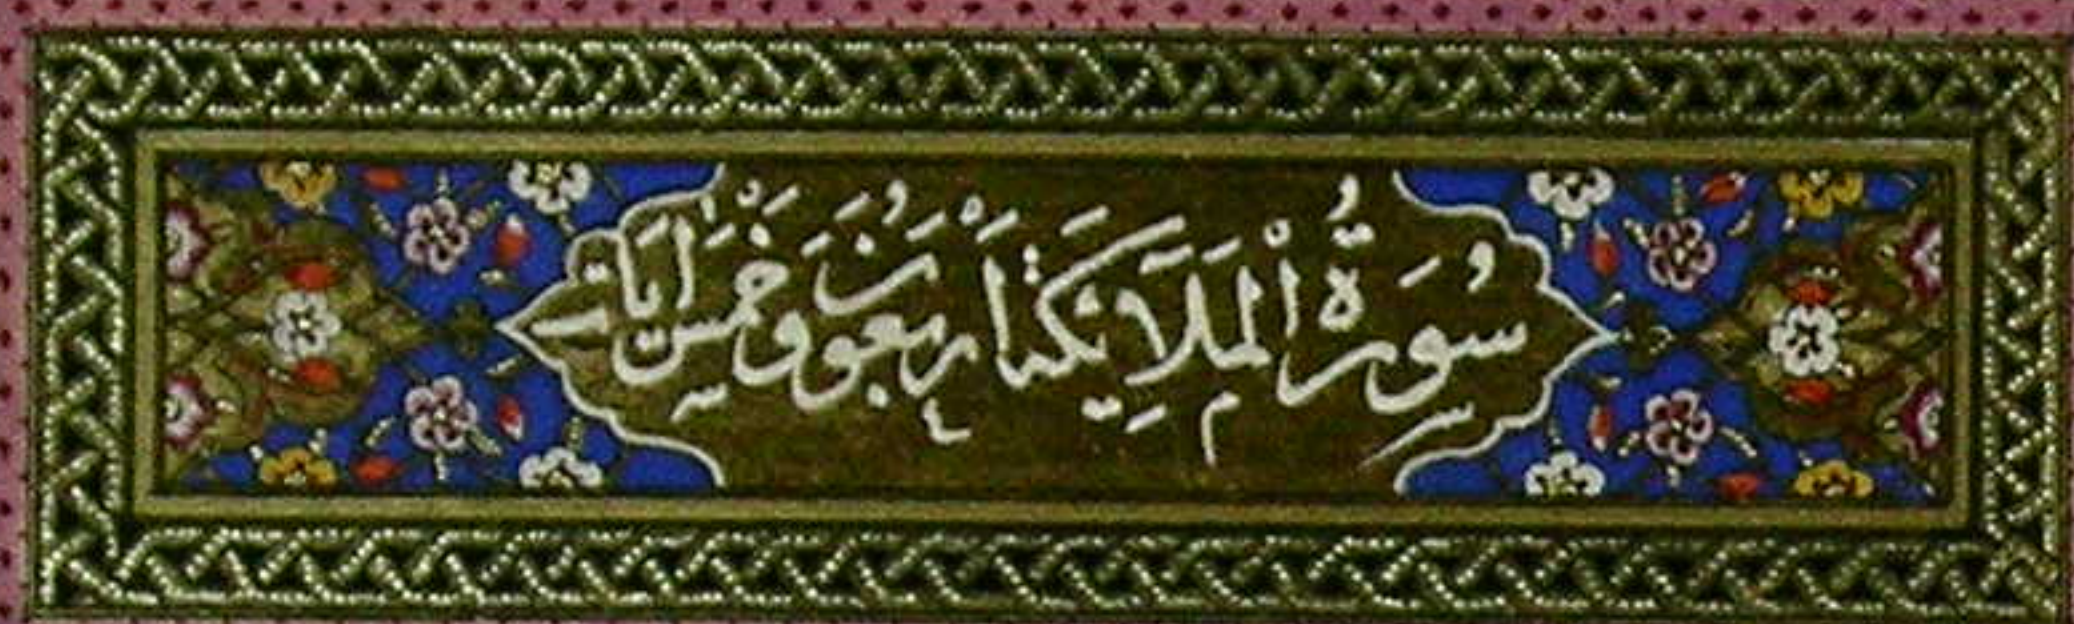 سُورَةُ الْمَلَآئِكَةِ اَرْبَعُونَ وَخَمْسُ اٰيَاتٍ